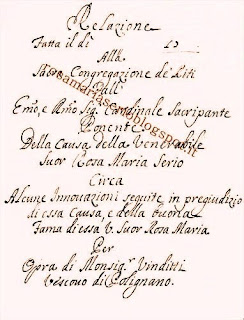 Relazione
Fatta il dì
Alla
Sacra Congregazione de' Riti
Dall'
Emo, e Rmo Sig. Cardinale Sacripante
Ponente
Della Causa della Venerabile
Suor Rosa Maria Serio
Circa
Alcune Innovazioni seguite in pregiudizio
di essa Causa, e della buona
Fama di essa V. Suor Rosa Maria
Per
Opra di Monsigr. Vinditti
Vescovo di Polignano.